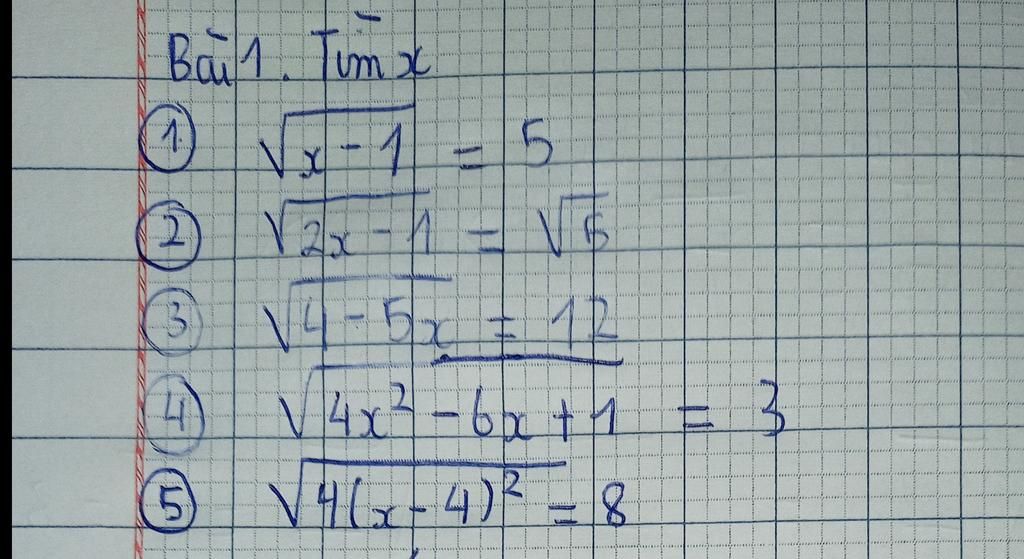 Bài 1. Tìm x
① √(x - 1) = 5
② √(2x - 1) = √5
③ √(4 - 5x) = 12
④ √(4x² - 6x + 1) = 3
⑤ √(4(x - 4)²) = 8